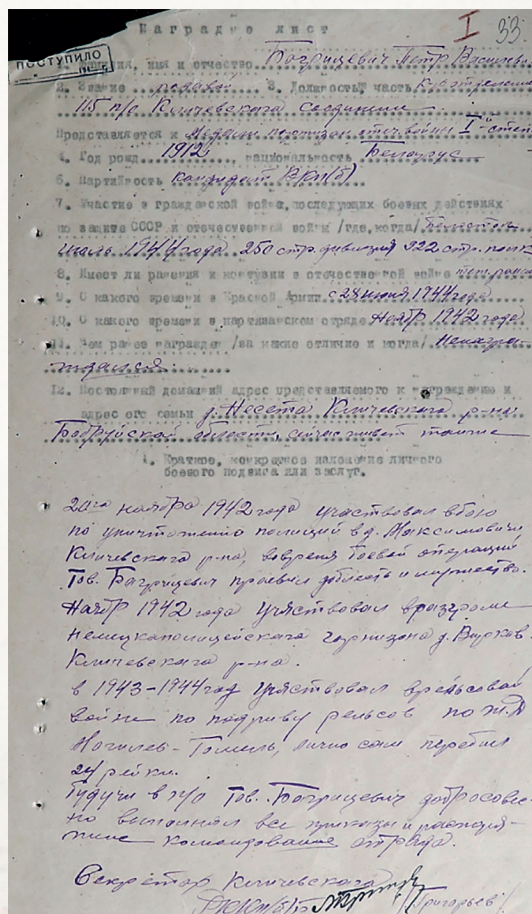 I 33.
Наградной лист
ПОСТУПИЛО
1. Фамилия, имя и отчество Багрицевич Петр Василье
2. Звание рядовой 3. Должность часть Ком отделения
115 п/о Кличевского соединения
Представляется к медали партизан отеч войны I-степ
4. Год рожд. 1912, национальность Белорус
6. Партийность кандидат ВКП(б)
7. Участие в гражданской войне, последующих боевых действиях
по защите СССР и отечественной войны /где, когда/
июль 1944 года 250 стр. дивизия 922 стр. полк
8. Имеет ли ранения и контузии в отечественной войне
9. С какого времени в Красной Армии с 28 июня 1944 года
10. С какого времени в партизанском отряде Ноябр 1942 года
11. Чем ранее награжден /за какие отличие и когда/ Ненагра
ждался
12. Постоянный домашний адрес представляемого к награждению и
адрес его семьи д. Несета Кличевского р-на
Бобруйской области, сейчас живет также
1. Краткое, конкретное изложение личного
боевого подвига или заслуг.
20го ноября 1942 года участвовал в бою
по уничтожению полиций в д. Максимовичи,
Кличевского р-на, вовремя боевой операций
Тов. Багрицевич проевил доблесть и мужество.
Ноябр 1942 года участвовал в разгроме
немецкаполицейского гарнизона д.
Кличевского р-на.
в 1943-1944 год участвовал врельсовой
войне по подриву рельсов по ж.д
Могилев-Гомель, лично сам перебил
24 рейки.
Будучи в п/о Тов. Багрицевич добросовес-
но выполнял все приказы и распоря-
жение командование отряда.
Секретар Кличевского
РККП(б)Б /Григорьев/